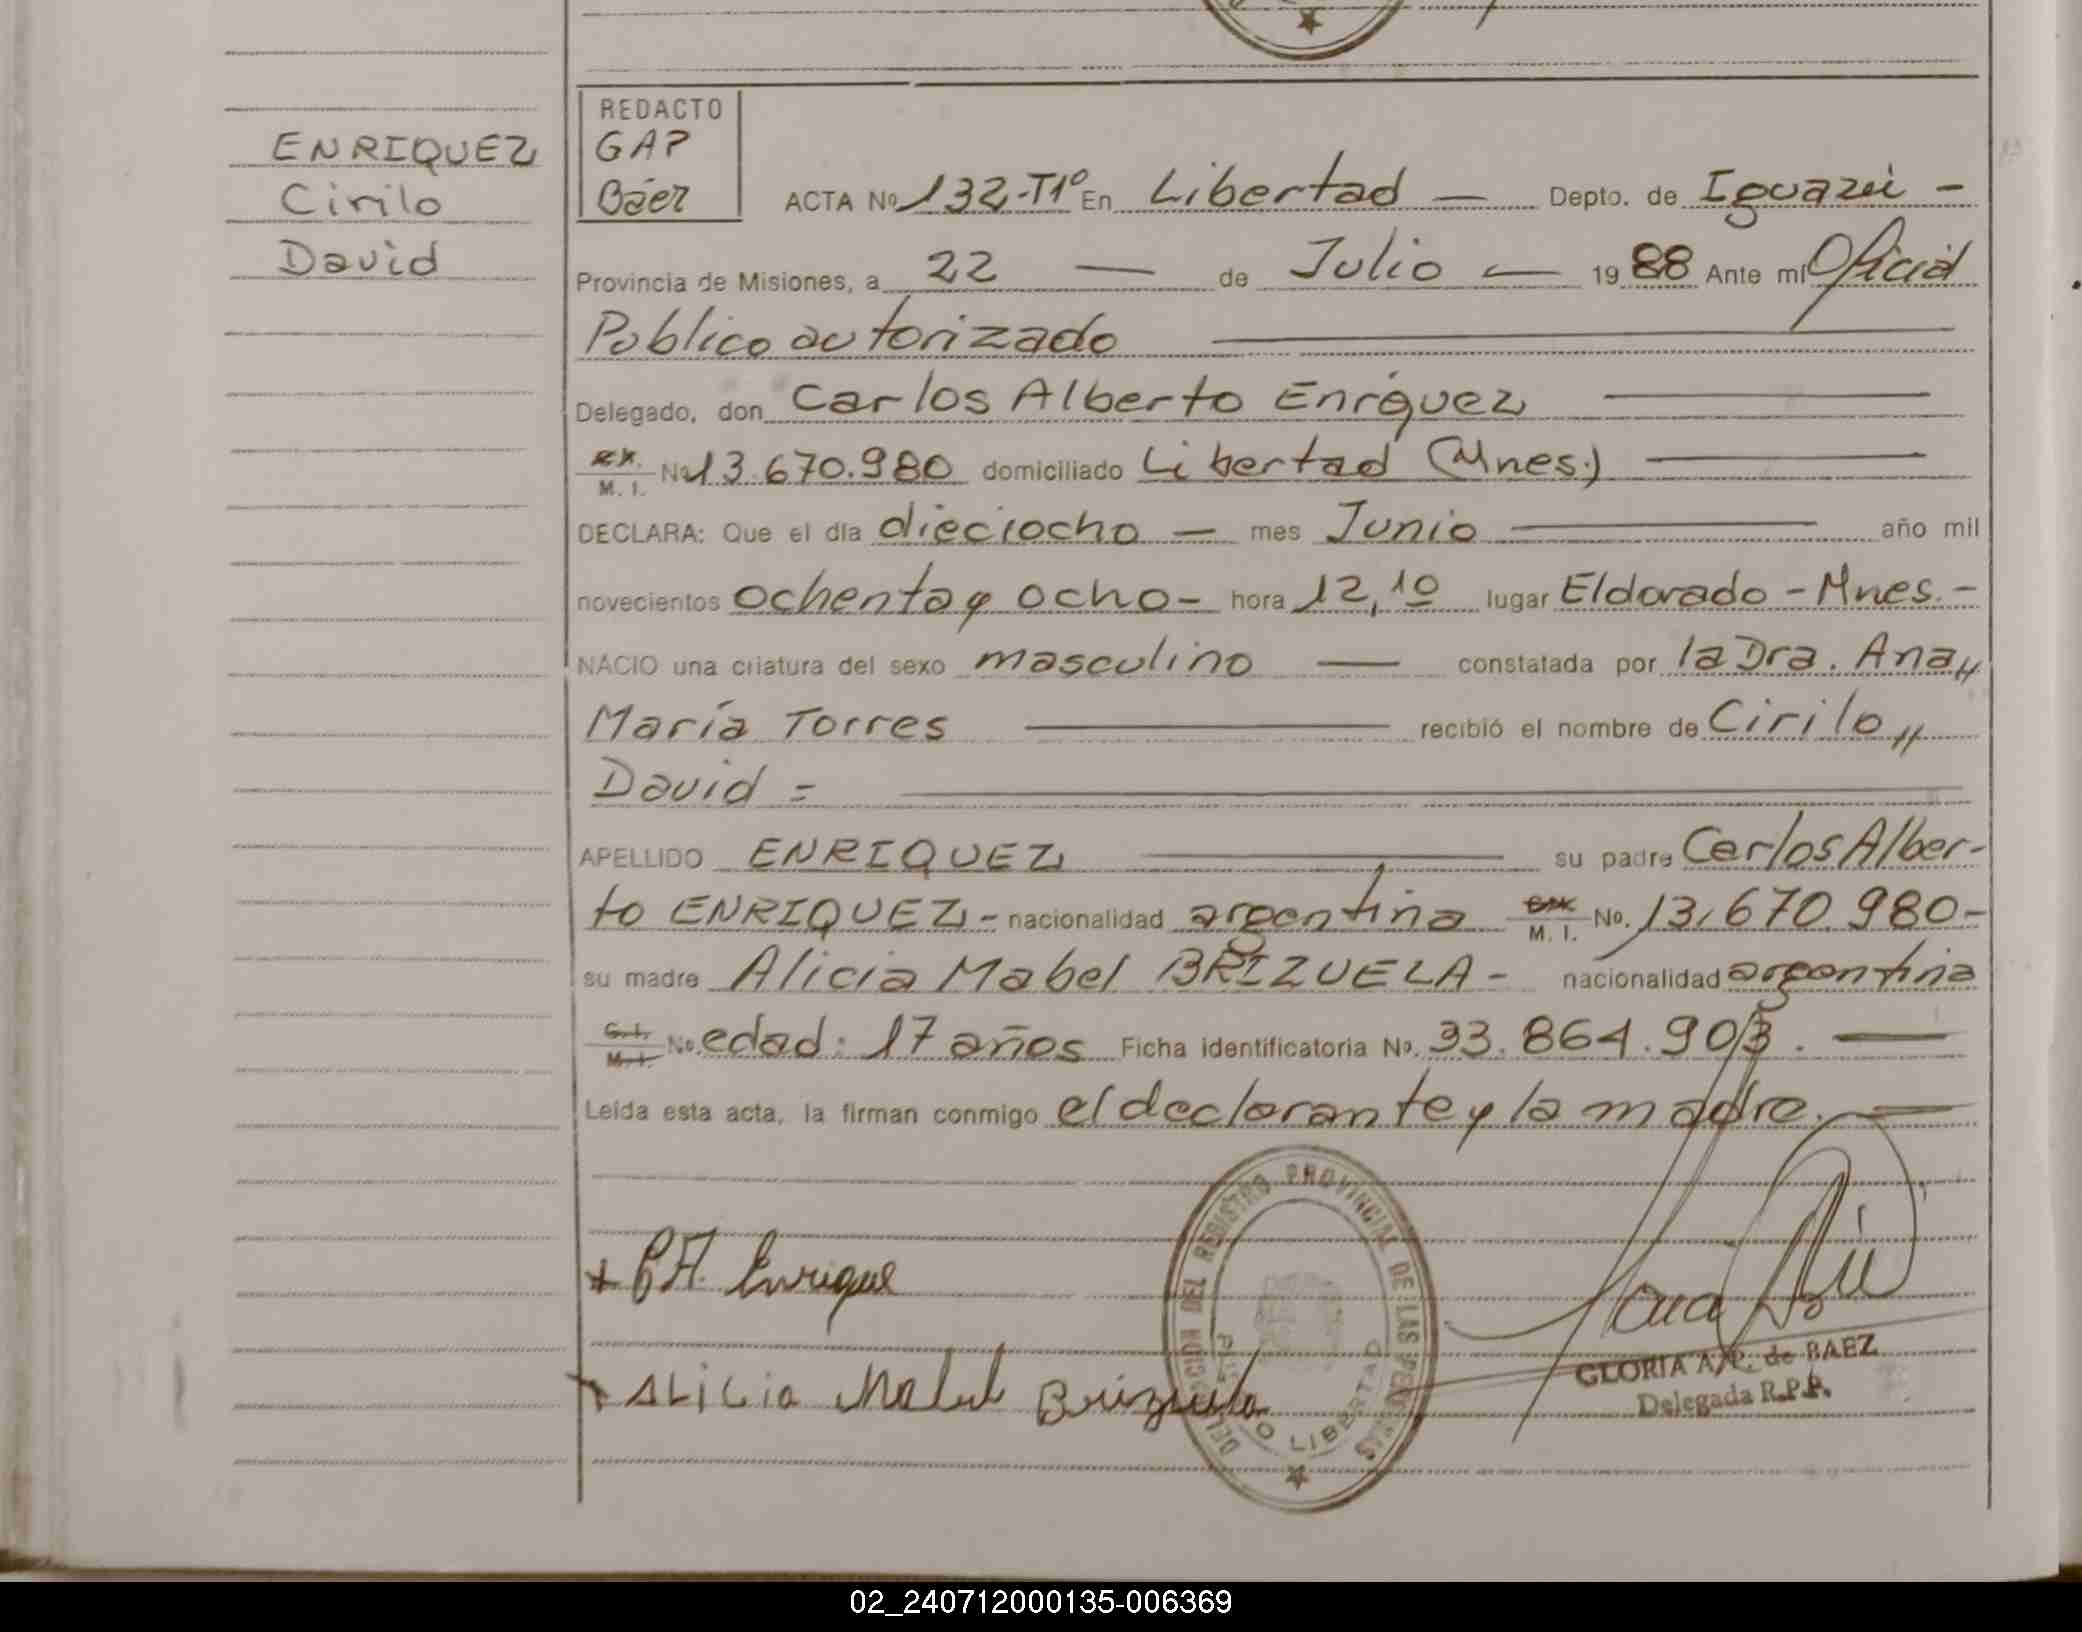 ENRIQUEZ
Cirilo
David
REDACTO
GAP
Báez
ACTA No 132-T1º En Libertad — Depto. de Iguazú -
Provincia de Misiones, a 22 — de Julio — 1988 Ante mí Oficial
Publico autorizado
Delegado, don Carlos Alberto Enríquez
M. I. No 13.670.980 domiciliado Libertad (Mnes.)
DECLARA: Que el día dieciocho — mes Junio — año mil
novecientos ochenta y ocho - hora 12,10 lugar Eldorado - Mnes. -
NACIO una criatura del sexo masculino — constatada por la Dra. Ana //
María Torres — recibió el nombre de Cirilo //
David =
APELLIDO ENRIQUEZ — su padre Carlos Alber-
to ENRIQUEZ - nacionalidad argentina M. I. No. 13.670.980-
su madre Alicia Mabel BRIZUELA - nacionalidad argentina
C.I. M.I. No. edad: 17 años Ficha identificatoria No. 33.864.903. —
Leída esta acta, la firman conmigo el declarante y la madre. —
+ CA. Enrique
+ ALiCia Mabel Brizuela
DELEGACION DEL REGISTRO PROVINCIAL DE LAS PERSONAS
PUERTO LIBERTAD
GLORIA A.P. de BAEZ
Delegada R.P.P.
02_240712000135-006369